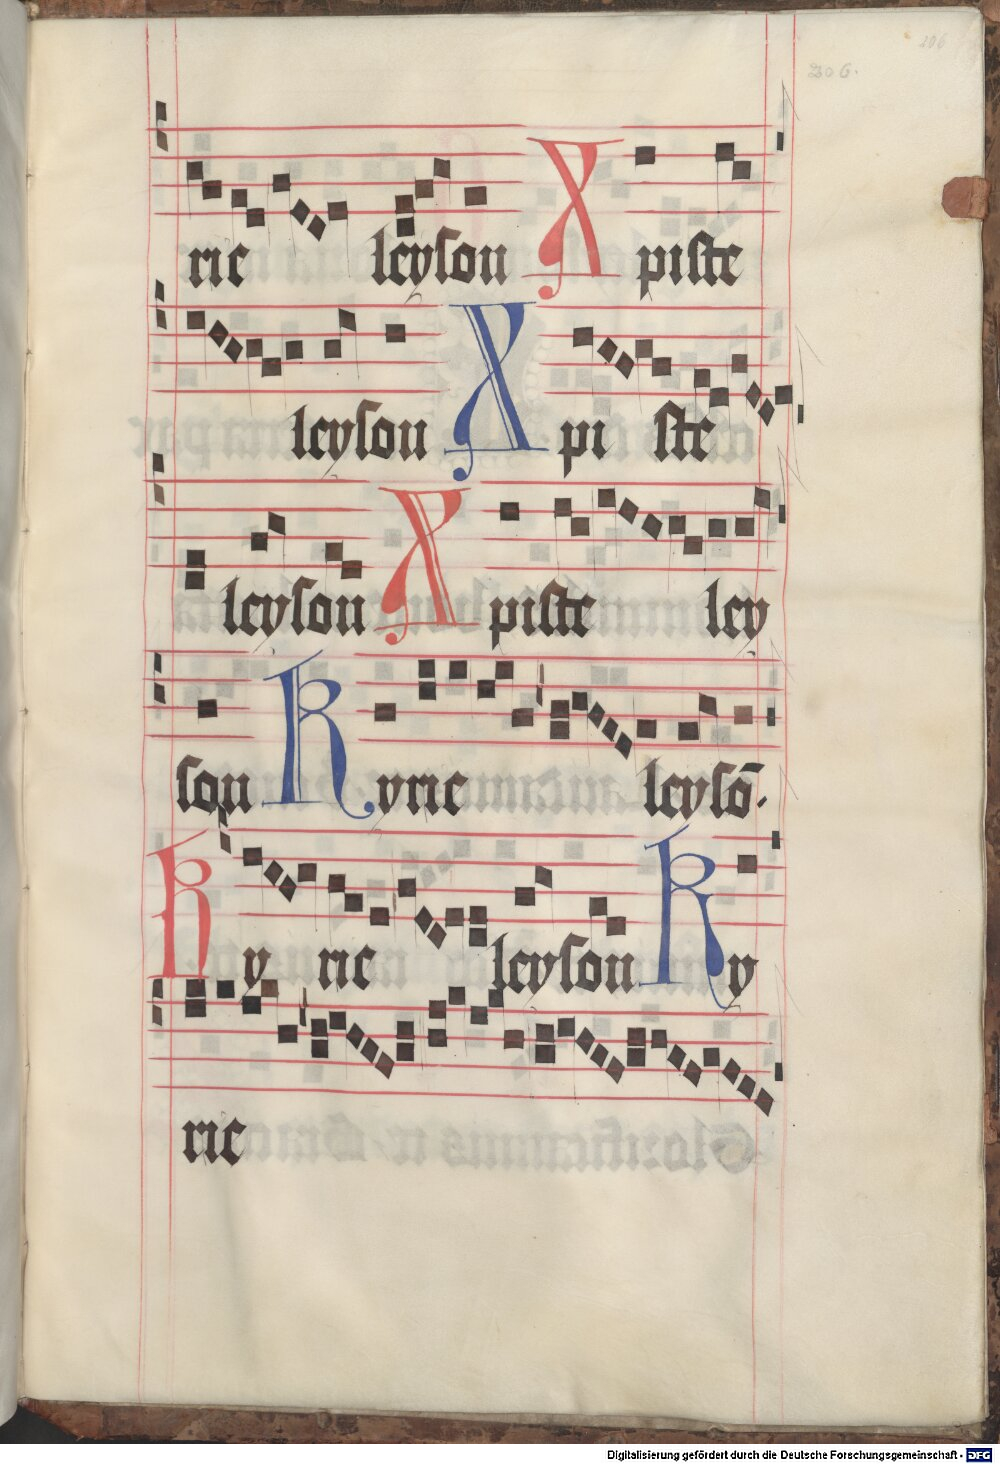 206
206.
rie leyson Xpiste
leyson Xpi ste
leyson Xpiste ley
son Kyrie leysō.
Ky rie leyson Ky
rie
Digitalisierung gefördert durch die Deutsche Forschungsgemeinschaft - DFG